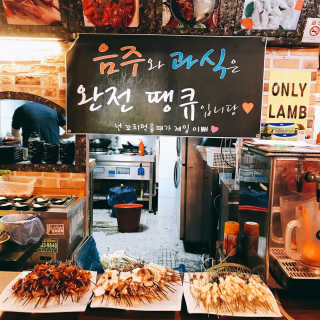 음주와 과식은
완전 땡큐입니다
넌 꼬치먹을때가 제일 이뻐
ONLY
LAMB